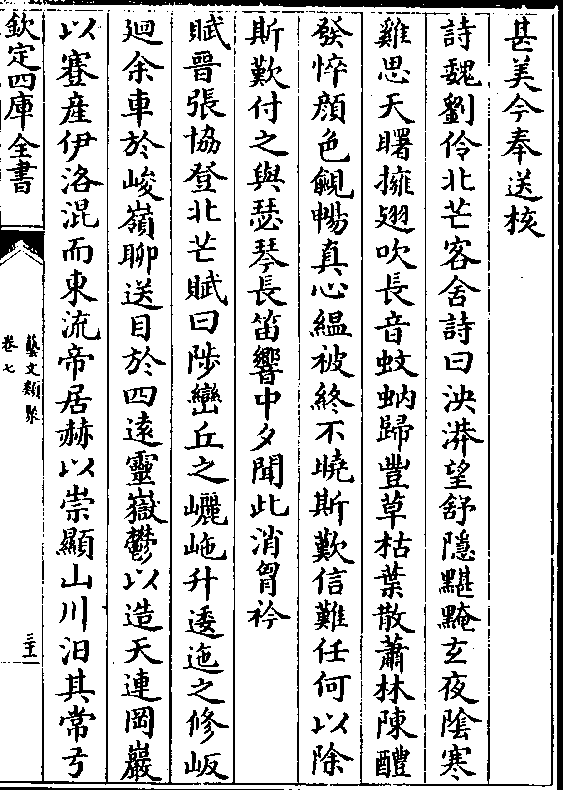 甚美今奉送核
詩魏劉伶北芒客舍詩曰泱漭望舒隱黮黤玄夜陰寒
雞思天曙擁翅吹長音蚊蚋歸豐草枯葉散蕭林陳醴
發悴顔色覦暢真心緼被終不曉斯歎信難任何以除
斯歎付之與瑟琴長笛響中夕聞此消胷衿
賦晉張協登北芒賦曰陟巒丘之㠠崺升逶迤之修岅
迴余車於峻嶺聊送目於四遠靈嶽鬱以造天連岡巖
以蹇産伊洛混而東流帝居赫以崇顯山川汨其常弓
欽定四庫全書
藝文類聚
卷七
三十一